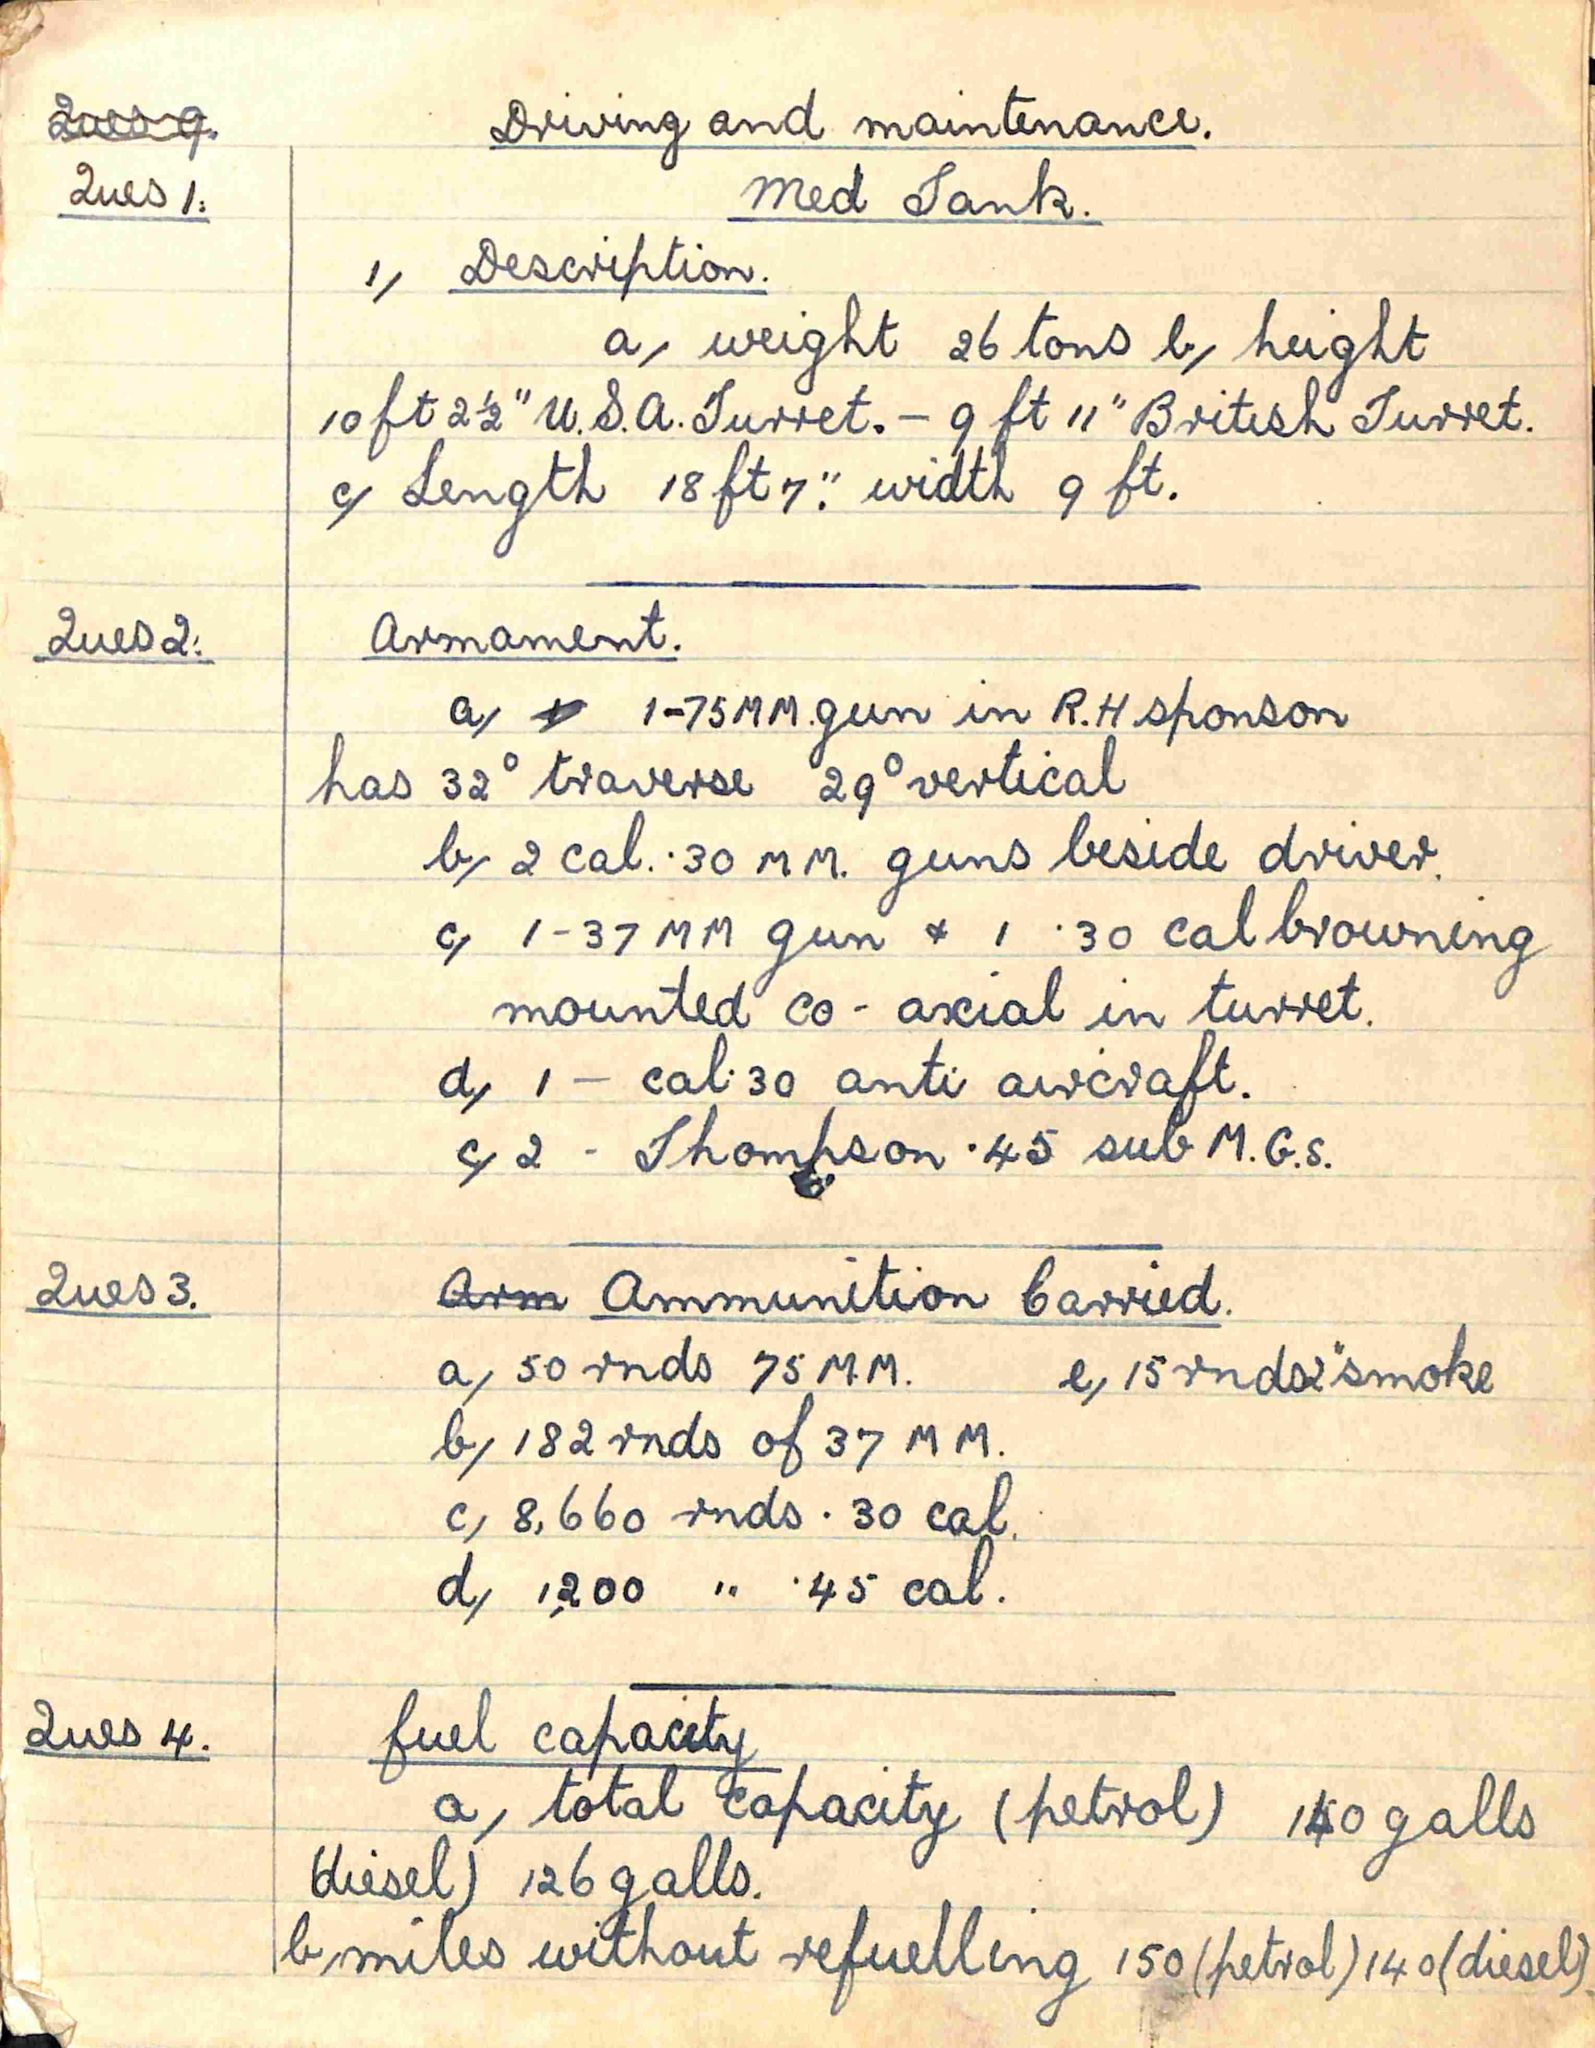 Ques 9. Driving and maintenance.
Ques 1: Med Tank.
1, Description.
a, weight 26 tons b, height
10 ft 2½" U.S.A. Turret. - 9 ft 11" British Turret.
c, Length 18 ft 7". width 9 ft.
Ques 2: Armament.
a, 1-75 MM. gun in R.H sponson
has 32° traverse 29° vertical
b, 2 cal. .30 MM. guns beside driver.
c, 1-37 MM gun & 1 .30 cal browning
mounted co-axial in turret.
d, 1 - cal .30 anti aircraft.
c, 2 - Thompson .45 sub M.G.s.
Ques 3. Arm Ammunition Carried.
a, 50 rnds 75 M.M. e, 15 rnds 2" smoke
b, 182 rnds of 37 MM.
c, 8,660 rnds .30 cal.
d, 1,200 " .45 cal.
Ques 4. fuel capacity
a, total capacity (petrol) galls
(diesel) 126 galls.
b, miles without refuelling 150 (petrol) 140 (diesel).